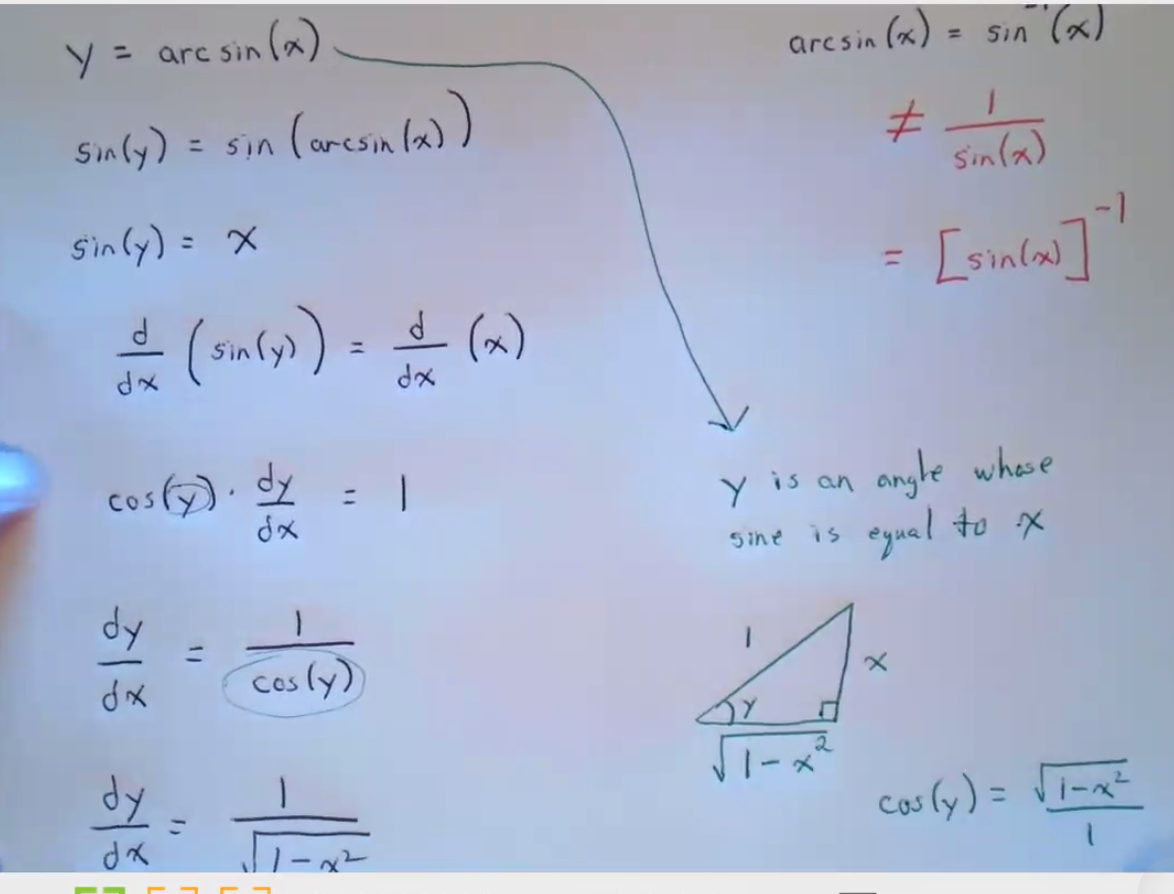 y = arcsin(x)
sin(y) = sin(arcsin(x))
sin(y) = x
d/dx (sin(y)) = d/dx (x)
cos(y) · dy/dx = 1
dy/dx = 1/cos(y)
dy/dx = 1/√(1-x²)
arcsin(x) = sin⁻¹(x)
≠ 1/sin(x)
= [sin(x)]⁻¹
y is an angle whose
sine is equal to x
1
x
y
√(1-x²)
cos(y) = √(1-x²)/1